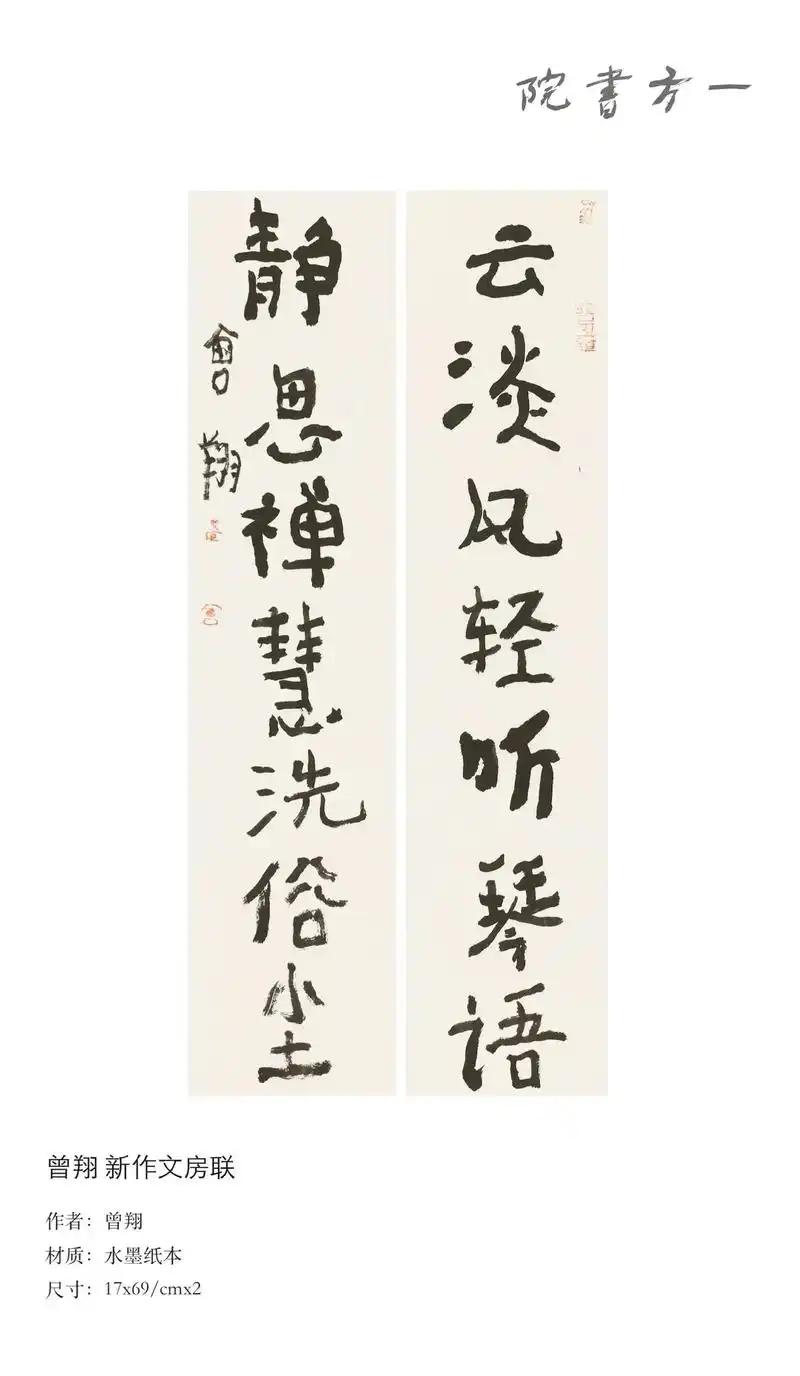 一方書院
云淡风轻听琴语
静思禅慧洗俗尘
曾翔
曾翔 新作文房联
作者：曾翔
材质：水墨纸本
尺寸：17x69/cmx2